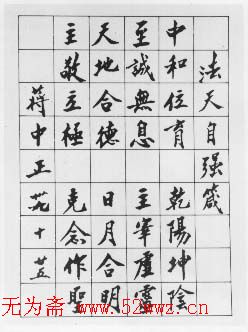 法天自强箴
中和位育 乾陽坤陰
至誠無息 主宰虛靈
天地合德 日月合明
主敬立極 克念作聖
蔣中正 十 廿五
无为斋 www.52wwz.cn